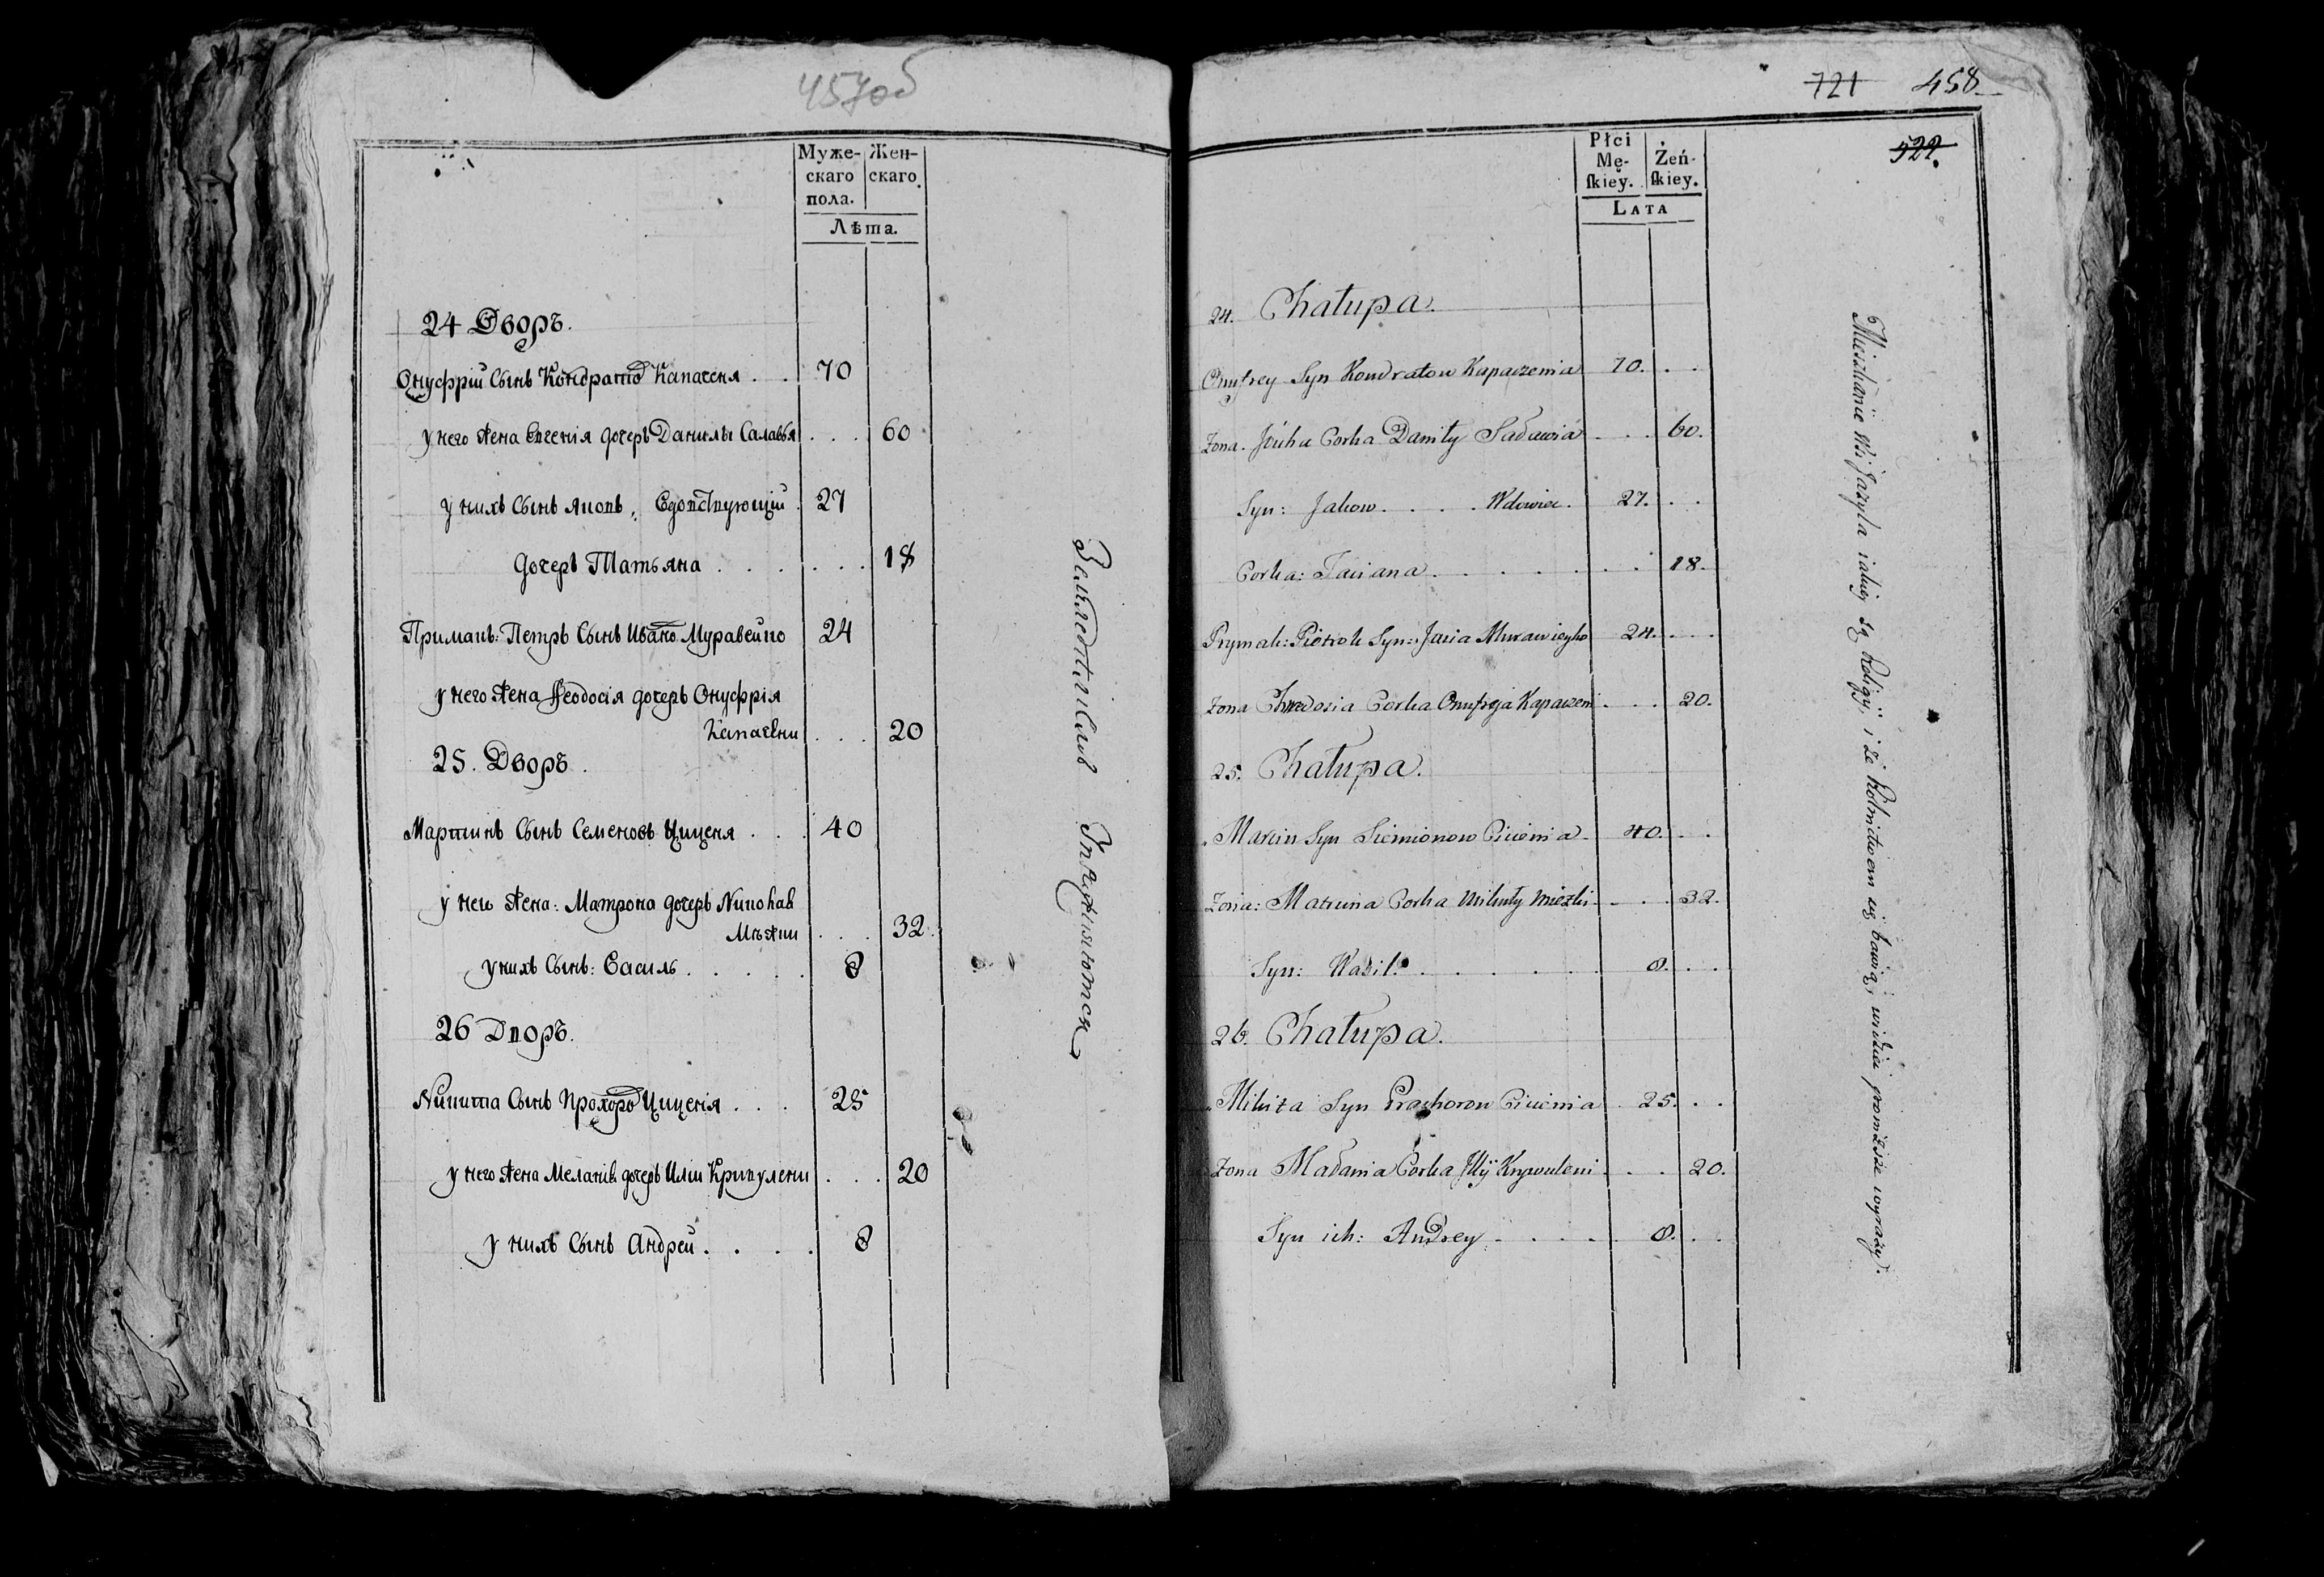 457об
Муже- Жен-
скаго скаго
пола.
Лѣта.
24 Дворъ.
Онуфрій Сынъ Кондратов Капаченя . . 70
у него жена Евгенія дочерь Данилы Салавья . . . 60
у нихъ Сынъ Яковъ, Вдовствующій 27
дочерь Татьяна . . . . . . 18
Примакъ: Петръ Сынъ Иванов Муравейко 24
у него жена Феодосія дочерь Онуфрія
Капачени . . . 20
25. Дворъ.
Мартинъ Сынъ Семеновъ Циценя . . . 40
у него жена: Матрона дочерь
. . . 32
у нихъ Сынъ: Василь . . . . . 8
26 Дворъ.
Никита Сынъ Прохоров Циценія . . . 25
у него жена Меланія дочерь Иліи Кривулени . . . 20
у нихъ Сынъ Андрей . . . . 8
упражняются
721 458
522.
Płci
Mę- Żeń-
skiey. skiey.
LATA
24. Chałupa.
Onufrey Syn Kondratow Kapaczenia 70. . .
Żona. Corka Daniły . . . 60.
Syn: Jakow . . . . Wdowiec. 27. . .
Corka: Taciana . . . . . . . 18.
Prymak: Piotrok Syn: Jasia Murawieyko 24. . .
Żona Chwedosia Corka Onufreja Kapaczeni . . . 20.
25. Chałupa.
Marcin Syn Siemionow Ciucenia 40. . .
Żona: Matruna Corka Mikuły . . . 32.
Syn: Wasil . . . . . . 8. . .
26. Chałupa.
Mikita Syn Prochorow Ciucenia . 25. . .
Żona Małania Corka Illÿ Krywuleni . . . 20.
Syn ich: Andrey . . . . . 8. . .
są Religÿi, i że Rolnictwem się bawią,